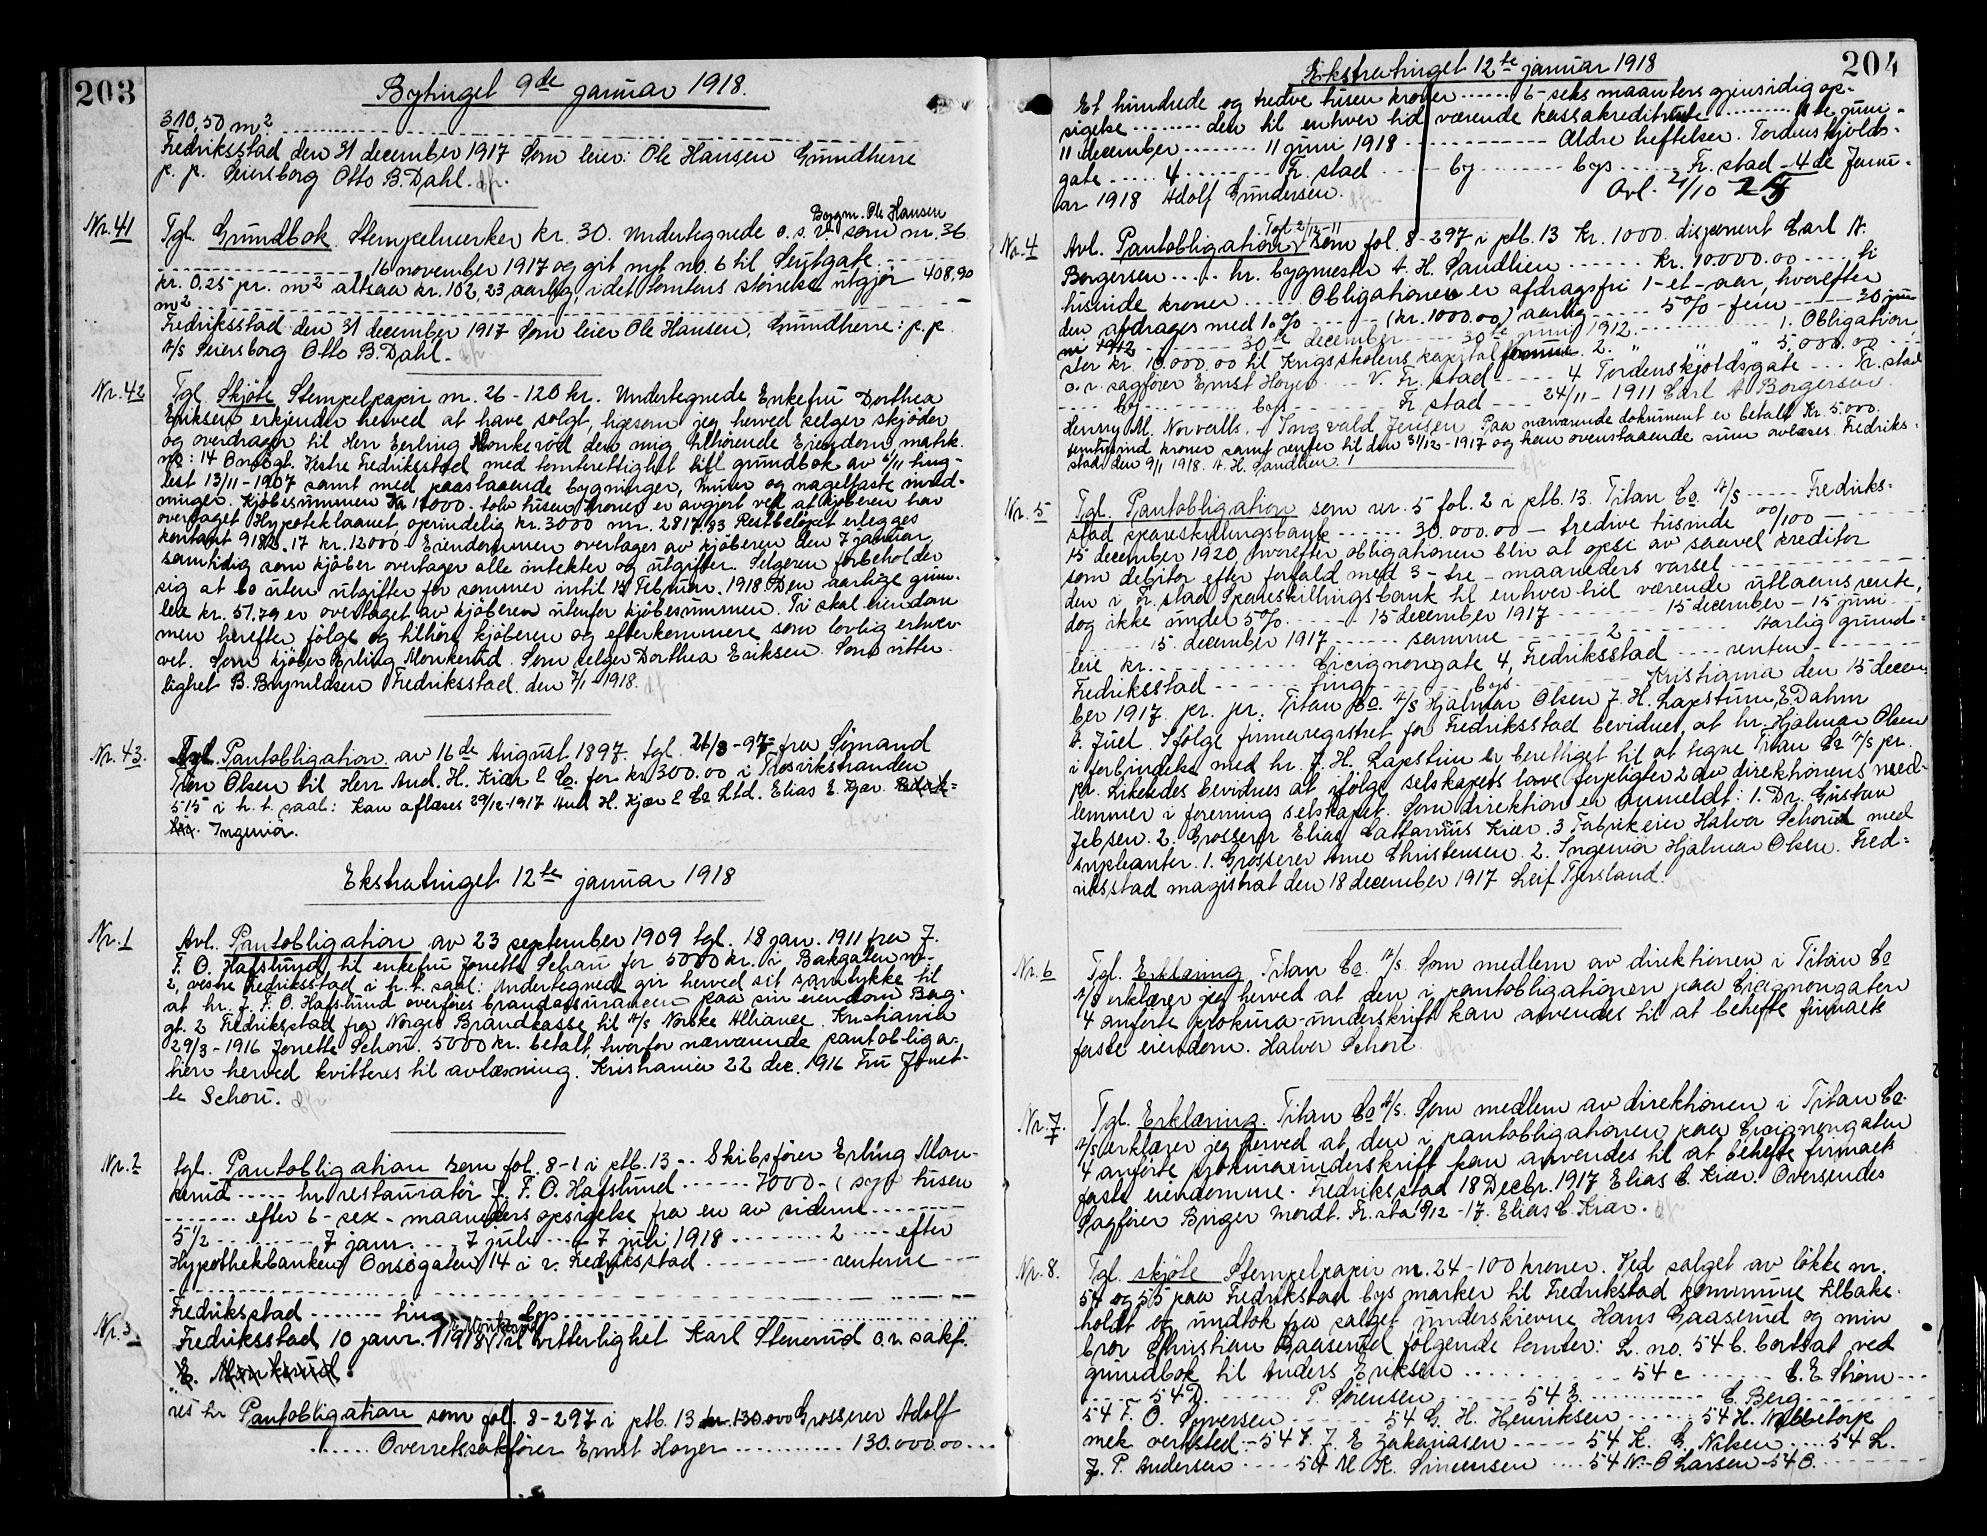 203
Bytinget 9de januar 1918.
310,50 m²
Fredriksstad den 31 december 1917 Som leier: Ole Hansen Grundherre
p. p. Seiersborg Otto B. Dahl.
Bygm. Ole Hansen
Nr. 41 Tgl. Grundbok Stempelmerker kr. 30. Undertegnede o. s. v. som nr. 36
16 november 1917 og git nyt no. 6 til
kr. 0.25 pr. m² altsaa kr. 102,23 aarlig, idet tomtens störrelse utgjör 408,90
m²
Fredriksstad den 31 december 1917 Som leier Ole Hansen. Grundherre: p. p.
A/S Seiersborg Otto B. Dahl.
Nr. 42 Tgl. Skjöte Stempelpapir nr. 26 - 120 kr. Undertegnede Enkefru Dorthea
Eriksen erkjender herved at have solgt, ligesom jeg herved selger skjöder
og overdrager til Herr Erling Monkerod den mig tilhörende Eiendom, matrk.
no: 14 Onsögt. Vestre Fredriksstad med tomterettighet till grundbok av 6/11 ting-
lest 13/11-1907 samt med paastaaende bygninger, mur og nagelfaste
Kjöbesummen Kr 12000 - tolv tusen kroner er avgjort ved at kjöberen har
overtaget Hypoteklaanet, oprindelig kr. 3000 nu. 2817.83 Restbelöpet erlegges
kontant 9182.17 kr. 12000 - Eiendommen overtages av kjöberen den 7 januar
samtidig som kjöber overtager alle intekter og utgifter. Selgeren forbeholder
sig at bo uten utgifter for sommer intil 15 Februar. 1918 Den aarlige grun-
leie kr. 51.79 er overtaget av kjöberen utenfor kjöbesummen. Ti skal eiendom
men herefter fölge og tilhöre kjöberen og efterkommere som lovlig erhver-
vet. Som kjöber Erling Monkerud. Som selger Dorthea Eriksen. Som vitter-
lighet B. Brynildsen Fredriksstad. den 7/1-1918.
Nr. 43. Avl. Pantobligation av 16de August 1897. tgl. 21/8-97 fra
Olsen til Herr And. H. Kiær & Co. for kr 300.00 i Trosvikstranden
515 i h. t. saal: Kan aflæses 29/12-1917 And H. Kjær & Co Ltd. Elias C. Kjær.
Ingeniör.
Ekstratinget 12te januar 1918
Nr. 1 Avl. Pantobligation av 23 september 1909 tgl. 18 jan. 1911 fra J.
F. O. Hafslund til enkefru Jonette Schou for 5000 kr. i Bakgaten nr.
2, vestre Fredriksstad i h. t. saal: Undertegnede gir herved sit samtykke til
at hr. J. F. O. Hafslund overföres brandassuransen paa sin eiendom Bag-
gt. 2 Fredriksstad fra Norges Brandkasse til A/S Norske Alliance. Kristiania
29/3-1916 Jonette Schou. 5000 kr. betalt hvorfor nærværende pantobliga-
tion herved kvitteres til avlæsning. Kristiania 22 dec. 1916 Fru Jonet-
te Schou.
Nr. 2 tgl. Pantobligation som fol. 8-1 i ptb. 13 .. Skibsförer Erling Mon-
kerud ..... hr. restauratör J. F. O. Hafslund ...... 7000 - (syv tusen
....... efter 6 - sex - maaneders opsigelse fra en av siderne .......
5 1/2 ......... 7 janr. .... 7 juli ..... 7 juli 1918 ......... 2 ..... efter
Hypothekbanken Onsögaten 14 i v. Fredriksstad ......... renterne
Fredriksstad ........ ting ........ bys
E. Monkerud
Nr. 3 Fredriksstad 10 janr. 1918 Til vitterlighet Karl Stenerud o.r. sakf.
E. Monkerud.
Pantobligation som fol. 8-297 i ptb. 13 kr. 130.000 Grosserer Adolf
...... Overretssakförer Ernst Hoyer ............ 130.000.00 ...
204
Ekstratinget 12te januar 1918
Et hundrede og tredve tusen kroner ...... 6 - seks maaneters gjensidig op-
sigelse ......... den til enhver tid værende kassakreditrente ......... 11te juni -
11 december ........ 11 juni 1918 ............ Ældre heftelser. Tordenskjolds-
gate ..... 4 ........ Fr. stad ...... by ........ bys ...... Fr. stad - 4de Janu-
ar 1918 Adolf Gundersen.
Avl. 21/10
Tgl. 2/12-11
Nr. 4 Avl. Pantobligation som fol. 8-297 i ptb. 13 Kr. 1000. disponent Carl A.
Borgersen ..... hr. bygmester A. H. Sandlien ...... kr. 10.000.00 .... ti
tusinde kroner .... Obligationen er afdragsfri 1 - et - aar, hvorefter
den afdrages med 10% ....... (kr. 1000.00) aarlig ..... 5% - fem ..... 30 juni
ni 1912 ........ 30te december ..... 30te juni 1912. ........... 1. Obligation
stor kr. 10.000.00 til Krigsskolens kapital 2. " " 5.000.00 ....
o. r. sagförer Ernst Hoyer .... V. Fr. stad ...... 4 Tordenskjoldsgate .... Fr. stad
....... by ........ bys ........ Fr. stad .... 24/11-1911 Carl A Borgersen
Henry M. Norvalls. - Ingvald Jensen. Paa nærværende dokument er betalt Kr. 5.000
femtusind kroner samt renter til den 31/12-1917 og kan ovenstaaende sum avlæses. Fredriks-
stad den 9/1 1918. A. H. Sandlien.
Nr. 5 Tgl. Pantobligation som nr. 5 fol. 2 i ptb. 13. Titan Co A/S ..... Fredriks-
stad spareskillingsbank ...... 30.000.00 - tredive tusinde 00/100 -
15 december 1920, hvorefter obligationen blir at opsi av saavel kreditor
som debitor efter forfald med 3 - tre - maaneders varsel
den i Fr. stad Spareskillingsbank til enhver tid værende utlaansrente,
dog ikke under 5%. ...... 15 december 1917 ........ 15 december - 15 juni
15 december 1917 ...... samme ........ 2 ........ Aarlig grund-
leie kr. ............ Cicignongate 4, Fredriksstad ..... renten
Fredriksstad ........ tings ........ bys ........ Kristiania den 15 decem-
ber 1917. pr. pr. Titan Co. A/S Hjalmar Olsen J. H. Lapstun, E Dahm
E. Juel. Ifölge firmaregistret for Fredriksstad bevidnes at hr. Hjalmar Olsen
i forbindelse med hr. J. H. Lapstun er berettiget til at tegne Titan Co A/S pr.
pr. Likeledes bevidnes at ifölge selskapets love forpligter 2 av direktionens med-
lemmer i forening selskapet. Som direktion er anmeldt: 1. Dr. Gustav
Jebsen. 2. Grosserer Elias Cattarius Kiær. 3 Fabrikeier Halvor Schou med
supleanter. 1. Grosserer Arne Christensen 2. Ingeniör Hjalmar Olsen. Fred-
riksstad magistrat den 18 december 1917 Leif Tjersland.
Nr. 6 Tgl. Erklæring Titan Co. A/S. Som medlem av direktionen i Titan Co
A/S erklærer jeg herved at den i pantobligationen paa Cicignongaten
4 anförte prokura-underskrift kan anvendes til at behefte firmaets
faste eiendom. Halvor Schou
Nr. 7. Tgl. Erklæring. Titan Co A/S. Som medlem av direktionen i Titan Co.
A/S erklærer jeg herved at den i pantobligationen paa Cicignongaten
4 anförte prokuraunderskrift kan anvendes til at behefte firmaets
faste eiendomme. Fredriksstad 18 Decbr. 1917 Elias C. Kiær. Oversendes
Sagförer Birger Mordt. Fr. sta 9/12-17. Elias C. Kiær.
Nr. 8. Tgl. skjöte Stempelpapir nr. 24 - 100 kroner. Ved salget av lökke nr.
54 og 55 paa Fredrikstad bys marker til Fredrikstad kommune tilbake-
holdt og undtok fra salget underskrevne Hans Gaaserud og min
bror Christian Gaaserud fölgende tomter: L. no. 54 b. bortsat ved
grundbok til Anders Eriksen ............ 54 c ....... C. E Strøm ...
...... 54 D. ........ P. Sörensen ......... 54 E. ............ C. Berg
54 F. O. Syversen ........ 54 G. H. Henriksen ....... 54 H. Nabbetorp
mek verksted - 54 J. J. E Zakariasen ...... 54 K. G. Nilsen ..... 54 L.
J. P. Andersen ...... 54 M. K. Simensen .... 54 N. - O Larsen - 54 O.